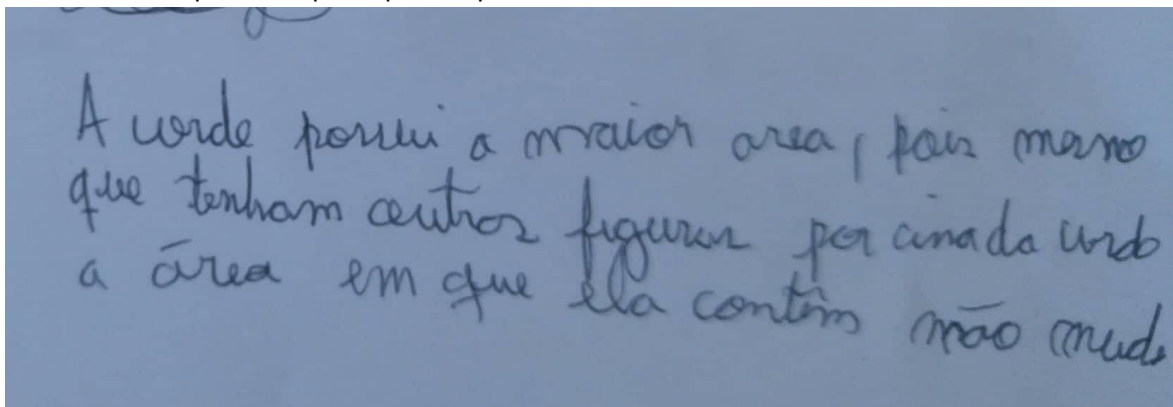 A verde possui a maior area, pois mesmo
que tenham outras figuras por cima da verde
a área em que ela contêm não muda